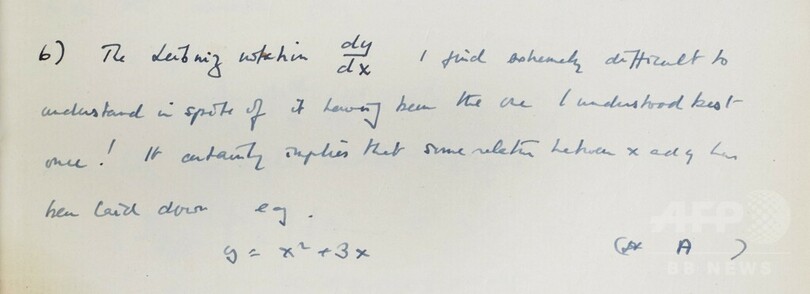 6) The Leibniz notation dy/dx I find extremely difficult to
understand in spite of it having been the one I understood best
once! It certainly implies that some relation between x and y has
been laid down eg.
y = x² + 3x ( A )
AFP
BB NEWS